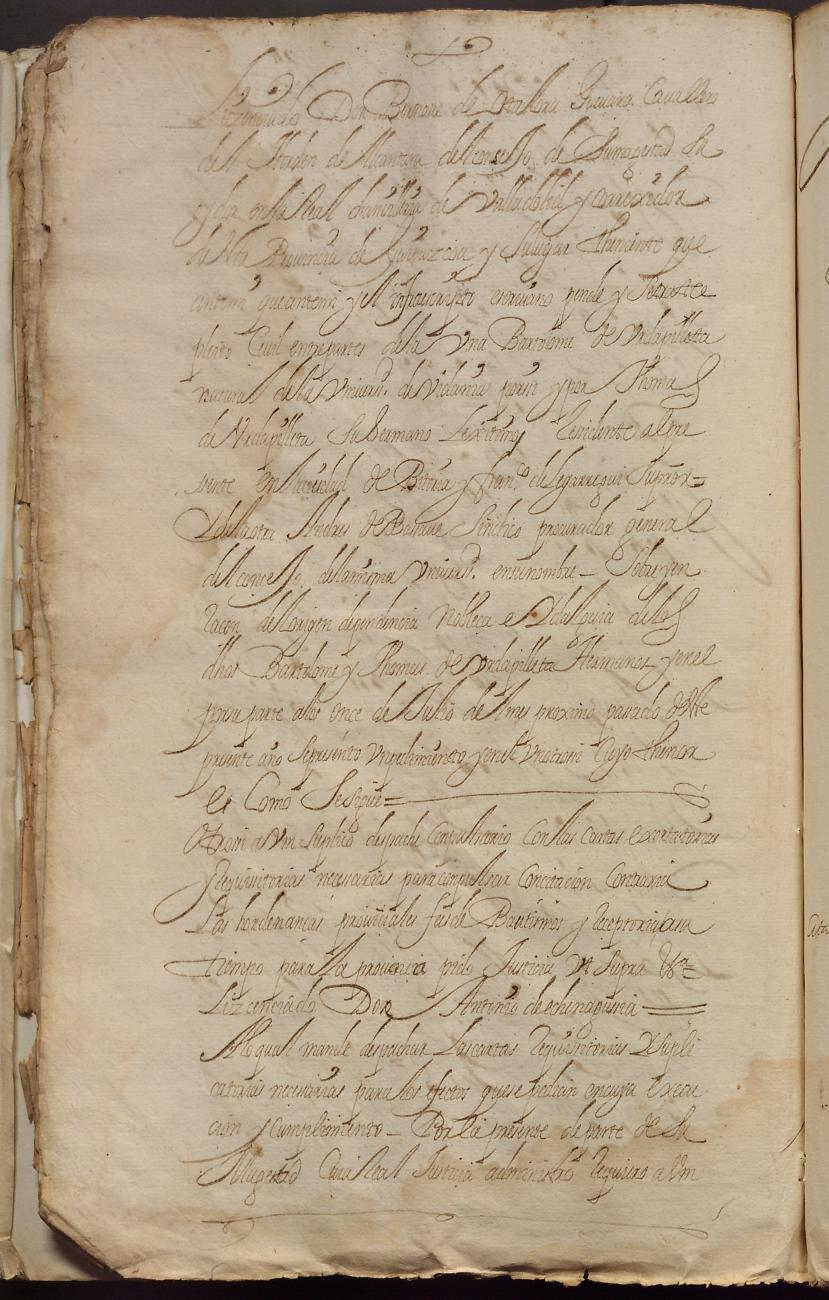 Lizenciado Don Bernave de Otalora Guevara Cavallero
del Horden de Alcantara del consejo de Su magestad Su
oydor en la Real chancilleria de Valladolid y correxidor
desta Provincia de Guipuzcoa y Su lugar theniente que
antemi que antemi y el infrascripto escrivano pende y Se trata
pleito Civil entre partes de la Una Bartolome de Urdapilleta
natural de la Univers.d de Vidania por si y por Thomas
de Urdapilleta Su hermano Lexitimo Residente al pre
sente en la ciudad de Bitoria y fran.co de Legarregui Su pror =
E de la otra Andres de Sindico procurador general
del concejo de la misma Univers.d en su nombre _ Sobre y en
racon del origen dependencia Nobleca e Ydalguia de los
dhos Bartolome y Thomas de Urdapilleta Hermanos y en el
por su parte a los once de Julio de mes proximo pasado deste
presente año Se presento Un pedimiento y en el Un otrosi Cuyo thenor
es Como Se sigue =
Otrosi a Vm Suplico despache Conpulsorio Con las cartas exortatorias
y requisitorias necesarias para conpulsar Con citacion Contraria
Las hordenancas provinciales fees de Bautismos y receptoria a su
tiempo para la provincia pido Justicia Ut Supra &a =
Lizcenciado Don Antonio de echenagusia =
A lo qual mande despachar Las cartas requisitorias E Supli
catorias necesarias para los efectos que se pedian en cuya execu
cion y cumplimiento _ Por la presente de parte de Su
Magestad Cuia Real Justicia administro requiero a Vm